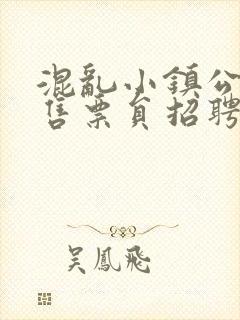 混亂小鎮公
售票員招聘
吳鳳飛